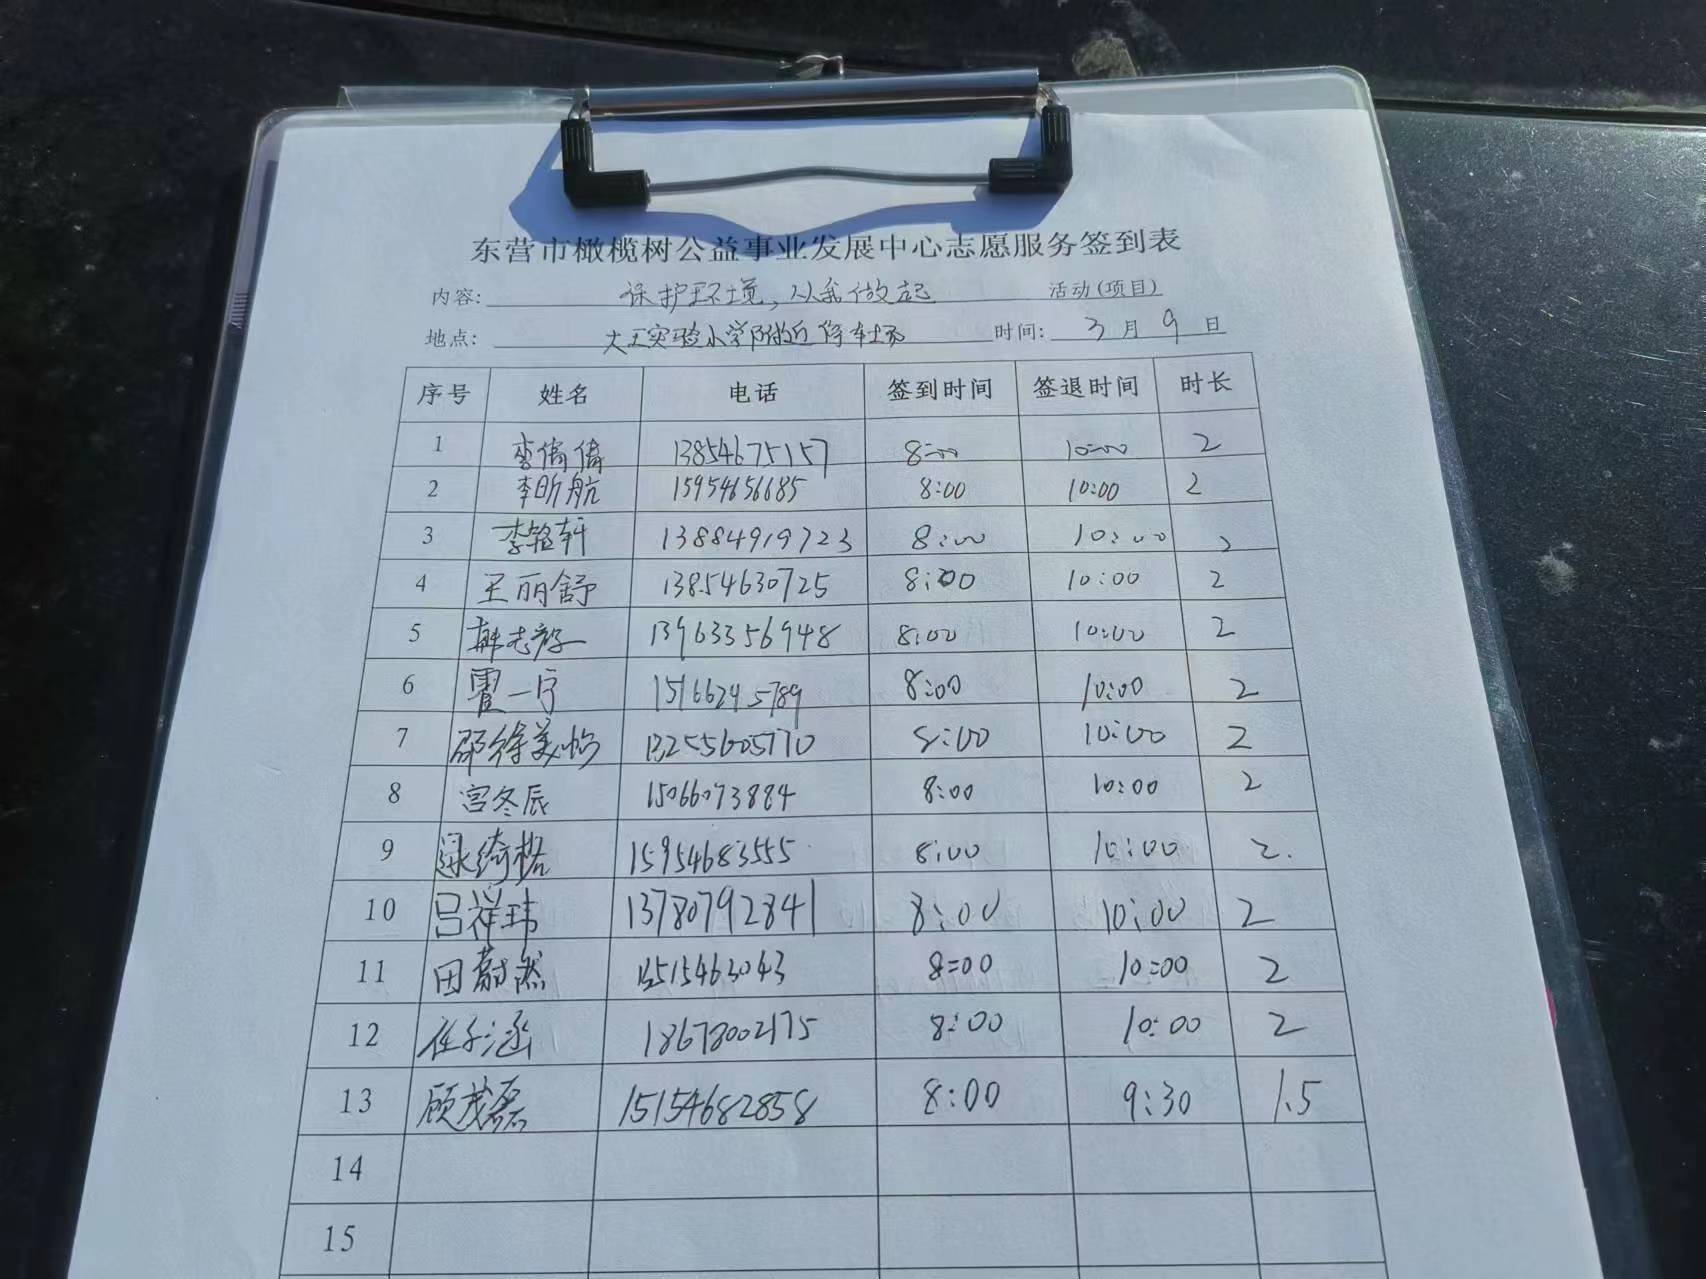 东营市橄榄树公益事业发展中心志愿服务签到表
内容: 保护环境，从我做起 活动(项目)
地点: 大王实验小学附近停车场 时间: 3月9日
序号 姓名 电话 签到时间 签退时间 时长
1 李倩倩 13854675157 8:00 10:00 2
2 李昕航 15954656685 8:00 10:00 2
3 李铭轩 13884919723 8:00 10:00 2
4 王丽舒 13854630725 8:00 10:00 2
5 韩志 13963356948 8:00 10:00 2
6 霍一宁 15166245789 8:00 10:00 2
7 邵徐美怡 13255605770 8:00 10:00 2
8 宫冬辰 15066073884 8:00 10:00 2
9 15954683555 8:00 10:00 2.
10 吕祥玮 13780792841 8:00 10:00 2
11 田蔚然 13515463043 8:00 10:00 2
12 任子涵 18678002175 8:00 10:00 2
13 顾茂磊 15154682858 8:00 9:30 1.5
14
15